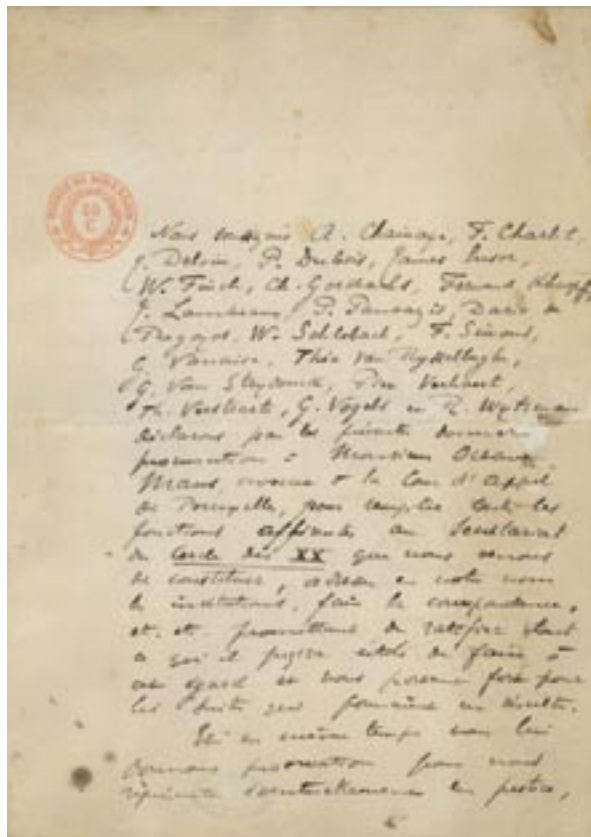 Nous soussignés A. Chainaye, F. Charlet,
J. Delvin, P. Dubois, James Ensor,
W. Finch, Ch. Goethals, Fernand Khnopff,
J. Lambeaux, P. Pantazis, Dario de
Regoyos, W. Schlobach, F. Simons,
G. Vanaise, Théo Van Rysselberghe,
G. Van Strydonck, Piet Verhaert,
Th. Verstraete, G. Vogels et R. Wytsman
déclarons par les présentes donner
procuration à Monsieur Octave
Maus, avocat à la Cour d'appel
de Bruxelles, pour remplir toutes les
fonctions afférentes au Secrétariat
du Cercle des XX que nous venons
de constituer, en notre nom
faire la correspondance,
et promettons de ratifier tout
ce qu'il jugera utile de faire à
cet égard et nous
en
en même temps nous lui
donnons procuration pour nous
représenter éventuellement en justice,